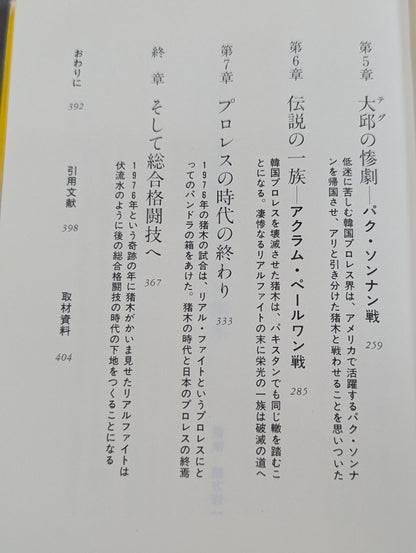 第5章 大邱の惨劇――パク・ソンナン戦 259
テグ
低迷に苦しむ韓国プロレス界は、アメリカで活躍するパク・ソンナ
ンを帰国させ、アリと引き分けた猪木と戦わせることを思いついた
第6章 伝説の一族――アクラム・ペールワン戦 285
韓国プロレスを壊滅させた猪木は、パキスタンでも同じ轍を踏むこ
とになる。凄惨なリアルファイトの末に栄光の一族は破滅の道へ
第7章 プロレスの時代の終わり 333
1976年の猪木の試合は、リアル・ファイトというプロレスにと
ってのパンドラの箱をあけた。猪木の時代と日本のプロレスの終焉
終章 そして総合格闘技へ 367
1976年という奇跡の年に猪木がかいま見せたリアルファイトは
伏流水のように後の総合格闘技の時代の下地をつくることになる
おわりに 392
引用文献 398
取材資料 404